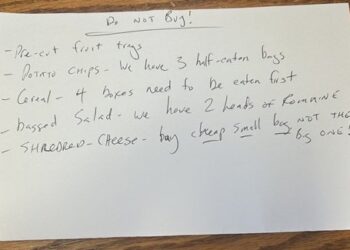 Do Not Buy!
- Pre-cut fruit trays
- Potato Chips - We have 3 half-eaten bags
- Cereal - 4 boxes need to be eaten first
- Bagged Salad - we have 2 heads of Romaine
- Shredded - Cheese - buy cheap small bag NOT THE
BIG ONE!